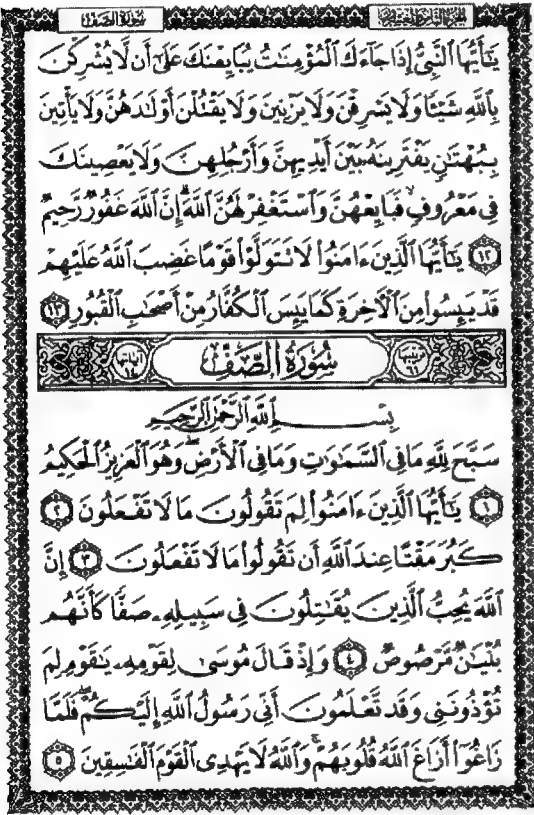 سُورَةُ الصَّفِّ
الجزء الثامن والعشرون
يَـٰٓأَيُّهَا ٱلنَّبِيُّ إِذَا جَآءَكَ ٱلْمُؤْمِنَـٰتُ يُبَايِعْنَكَ عَلَىٰٓ أَن لَّا يُشْرِكْنَ
بِٱللَّهِ شَيْـًٔا وَلَا يَسْرِقْنَ وَلَا يَزْنِينَ وَلَا يَقْتُلْنَ أَوْلَـٰدَهُنَّ وَلَا يَأْتِينَ
بِبُهْتَـٰنٍ يَفْتَرِينَهُۥ بَيْنَ أَيْدِيهِنَّ وَأَرْجُلِهِنَّ وَلَا يَعْصِينَكَ
فِى مَعْرُوفٍ ۙ فَبَايِعْهُنَّ وَٱسْتَغْفِرْ لَهُنَّ ٱللَّهَ ۖ إِنَّ ٱللَّهَ غَفُورٌ رَّحِيمٌ
١٢ يَـٰٓأَيُّهَا ٱلَّذِينَ ءَامَنُوا۟ لَا تَتَوَلَّوْا۟ قَوْمًا غَضِبَ ٱللَّهُ عَلَيْهِمْ
قَدْ يَئِسُوا۟ مِنَ ٱلْـَٔاخِرَةِ كَمَا يَئِسَ ٱلْكُفَّارُ مِنْ أَصْحَـٰبِ ٱلْقُبُورِ ١٣
ترتيبها ٦١ سُورَةُ الصَّفِّ آياتها ١٤
بِسْمِ ٱللَّهِ ٱلرَّحْمَـٰنِ ٱلرَّحِيمِ
سَبَّحَ لِلَّهِ مَا فِى ٱلسَّمَـٰوَٰتِ وَمَا فِى ٱلْأَرْضِ ۖ وَهُوَ ٱلْعَزِيزُ ٱلْحَكِيمُ
١ يَـٰٓأَيُّهَا ٱلَّذِينَ ءَامَنُوا۟ لِمَ تَقُولُونَ مَا لَا تَفْعَلُونَ ٢
كَبُرَ مَقْتًا عِندَ ٱللَّهِ أَن تَقُولُوا۟ مَا لَا تَفْعَلُونَ ٣ إِنَّ
ٱللَّهَ يُحِبُّ ٱلَّذِينَ يُقَـٰتِلُونَ فِى سَبِيلِهِۦ صَفًّا كَأَنَّهُم
بُنْيَـٰنٌ مَّرْصُوصٌ ٤ وَإِذْ قَالَ مُوسَىٰ لِقَوْمِهِۦ يَـٰقَوْمِ لِمَ
تُؤْذُونَنِى وَقَد تَّعْلَمُونَ أَنِّى رَسُولُ ٱللَّهِ إِلَيْكُمْ ۖ فَلَمَّا
زَاغُوٓا۟ أَزَاغَ ٱللَّهُ قُلُوبَهُمْ ۚ وَٱللَّهُ لَا يَهْدِى ٱلْقَوْمَ ٱلْفَـٰسِقِينَ ٥